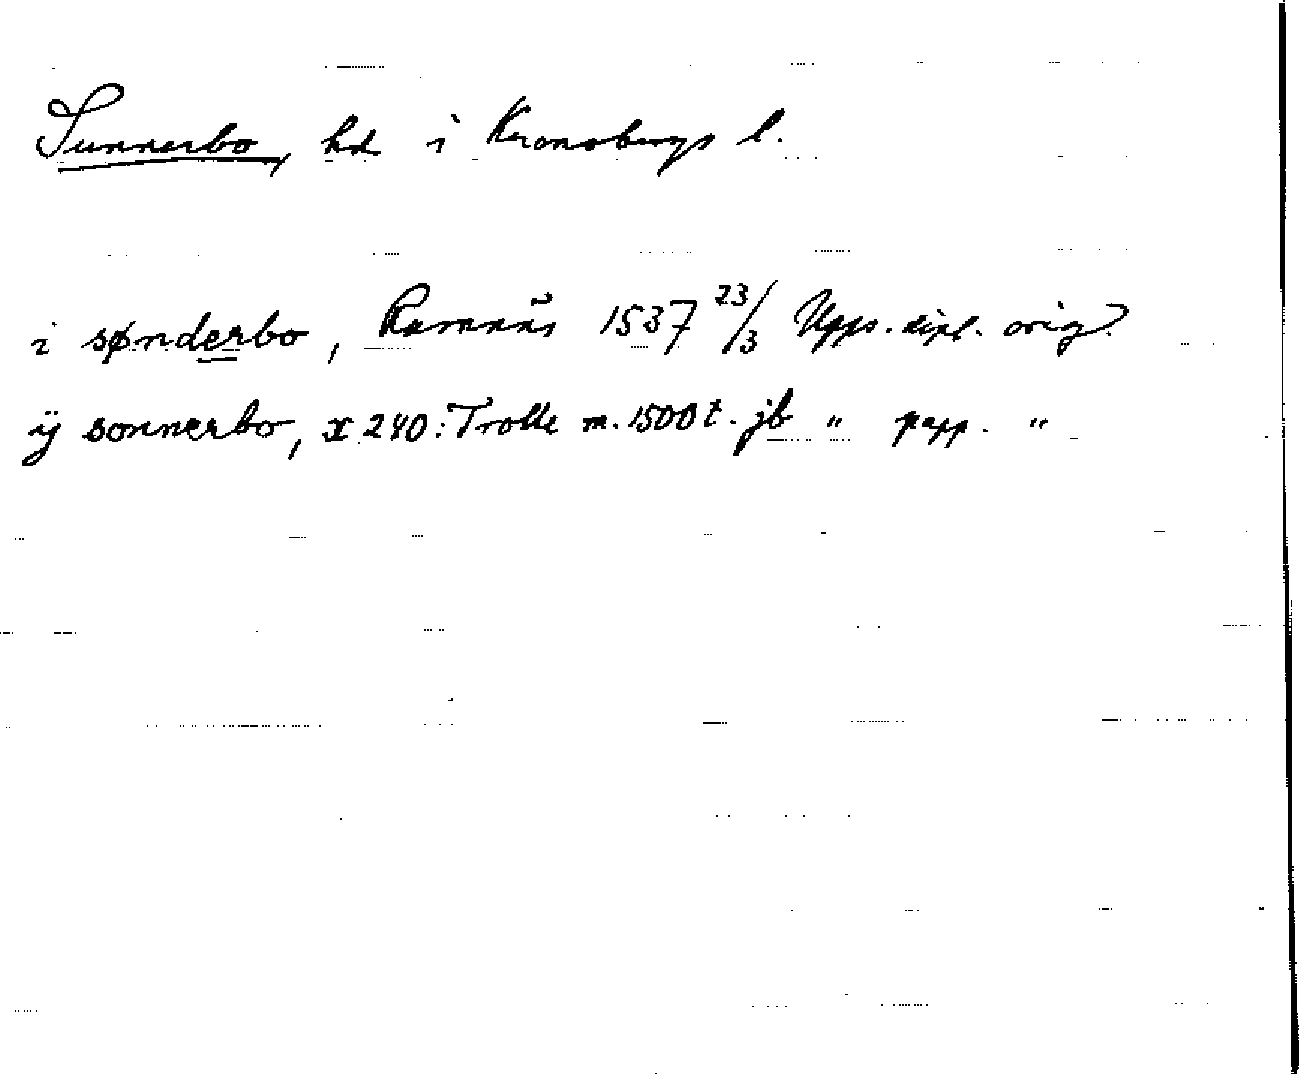 Sunnerbo, hd i Kronobergs l.
i sønderbo, Ramnäs 1537 23/3 Upps. dipl. orig.
ÿ sonnerbo, x 240: Trolle m. 1500 t. jb " papp. "